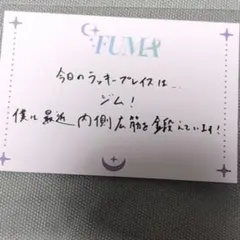 FUMA
今日のラッキープレイスは…
ジム！
僕は最近 内側広筋を鍛えています！